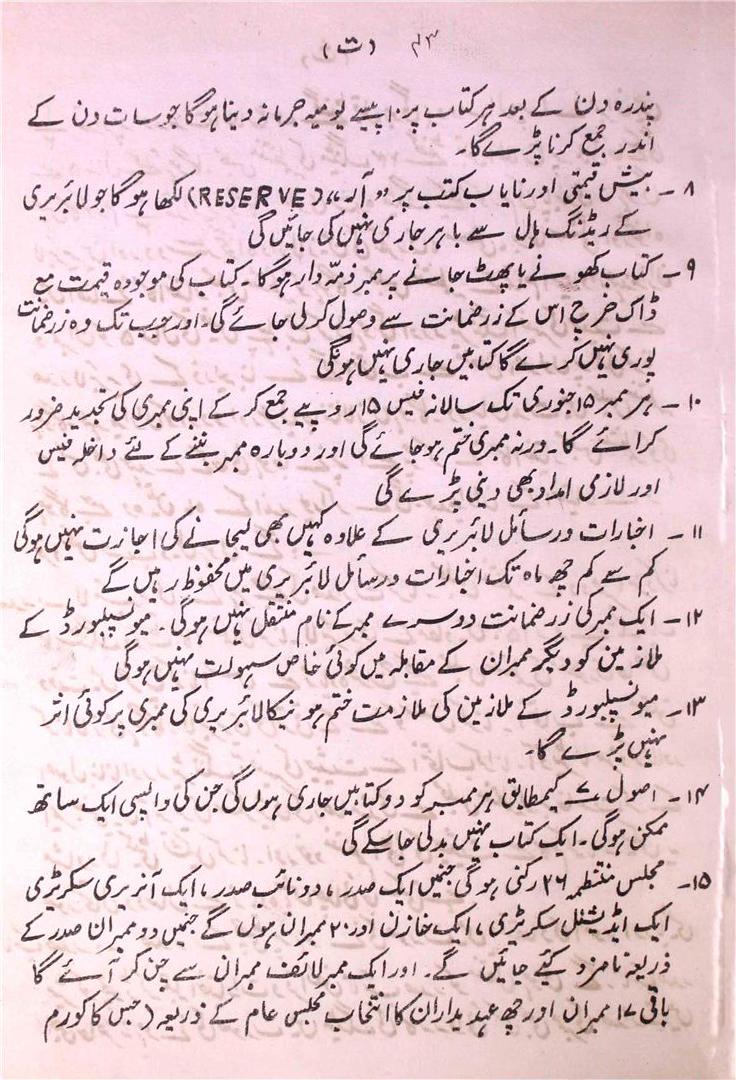 ۴۳ (ت)
پندرہ دن کے بعد ہر کتاب پر ۱۰ پیسے یومیہ جرمانہ دینا ہوگا جو سات دن کے
اندر جمع کرنا پڑے گا۔
۸۔ بیش قیمتی اور نایاب کتب پر "آر" (RESERVE) لکھا ہوگا جو لائبریری
کے ریڈنگ ہال سے باہر جاری نہیں کی جائیں گی
۹۔ کتاب کھونے یا پھٹ جانے پر ممبر ذمّہ دار ہوگا۔ کتاب کی موجودہ قیمت مع
ڈاک خرچ اس کے زر ضمانت سے وصول کر لی جائے گی۔ اور جب تک وہ زر ضمانت
پوری نہیں کرے گا کتابیں جاری نہیں ہونگی
۱۰۔ ہر ممبر ۱۵ جنوری تک سالانہ فیس ۱۵ روپیے جمع کر کے اپنی ممبری کی تجدید ضرور
کرائے گا۔ ورنہ ممبری ختم ہو جائے گی اور دوبارہ ممبر بننے کے لئے داخلہ فیس
اور لازمی امداد بھی دینی پڑے گی
۱۱۔ اخبارات و رسائل لائبریری کے علاوہ کہیں بھی لیجانے کی اجازت نہیں ہوگی
کم سے کم چھ ماہ تک اخبارات و رسائل لائبریری میں محفوظ رہیں گے
۱۲۔ ایک ممبر کی زر ضمانت دوسرے ممبر کے نام منتقل نہیں ہوگی۔ میونسپلبورڈ کے
ملازمین کو دیگر ممبران کے مقابلہ میں کوئی خاص سہولت نہیں ہوگی
۱۳۔ میونسپلبورڈ کے ملازمین کی ملازمت ختم ہونیکا لائبریری کی ممبری پر کوئی اثر
نہیں پڑے گا۔
۱۴۔ اصول ۷ کیمطابق ہر ممبر کو دو کتابیں جاری ہوں گی جن کی واپسی ایک ساتھ
ممکن ہوگی۔ ایک کتاب نہیں بدلی جا سکے گی
۱۵۔ مجلس منتظمہ ۲۶ رکنی ہوگی جنمیں ایک صدر، دو نائب صدر، ایک آنریری سکرٹری
ایک ایڈیشنل سکرٹری، ایک خازن اور ۲۰ ممبران ہوں گے جنمیں دو ممبران صدر کے
ذریعہ نامزد کیئے جائیں گے۔ اور ایک ممبر لائف ممبران سے چن کر آئے گا
باقی ۱۷ ممبران اور چھ عہدیداران کا انتخاب مجلس عام کے ذریعہ (جس کا کورم